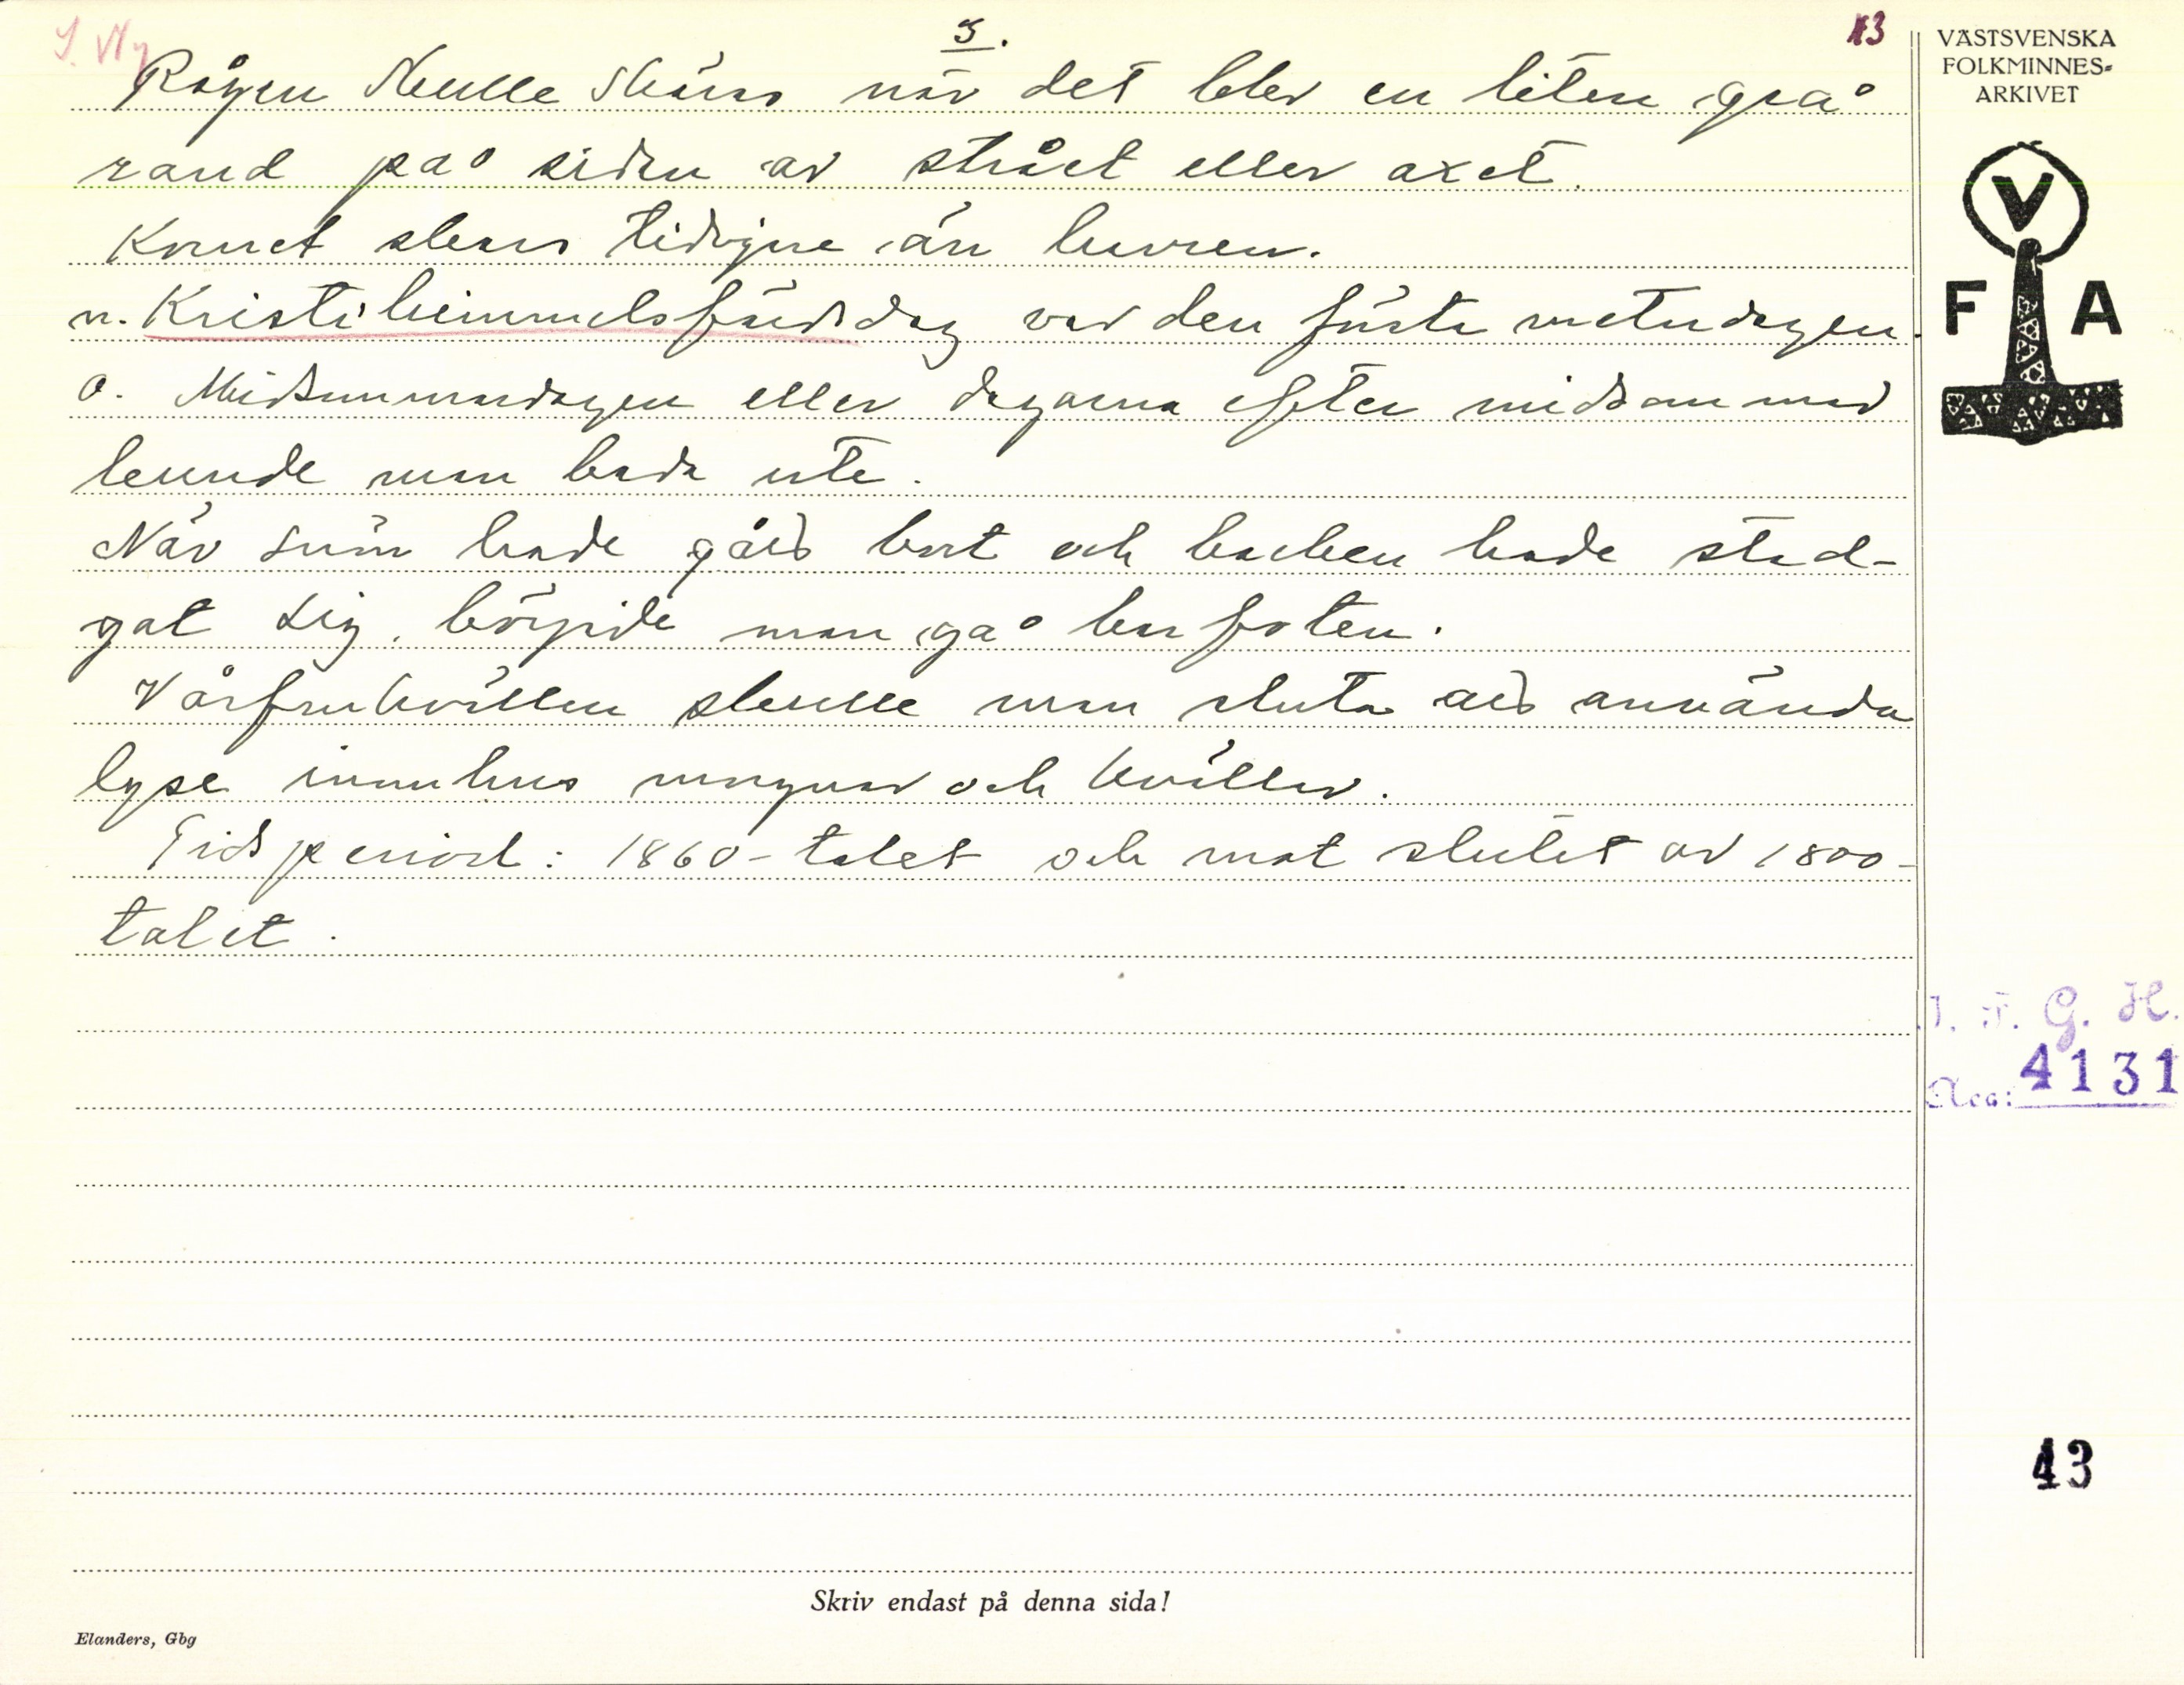 S. Ny
3.
13
Rågen skulle skäras när det blev en liten grå
rand på siden av strået eller axet.
Kornet skars tidigare än havren.
n. Kristihimmelsfärdsdag var den första metardagen
o. Midsommardagen eller dagarna efter midsommar
kunde man bada ute.
När snön hade gått bort och backen hade stad-
gat sig, började man gå barfoten.
Vårfrukvällen skulle man sluta att använda
lyse inomhus morgnar och kvällar.
Tidsperiod: 1860-talet och mot slutet av 1800-
talet.
Skriv endast på denna sida!
Elanders, Gbg
VÄSTSVENSKA
FOLKMINNES-
ARKIVET
V
F A
I. F. G. H.
Acc: 4131
13